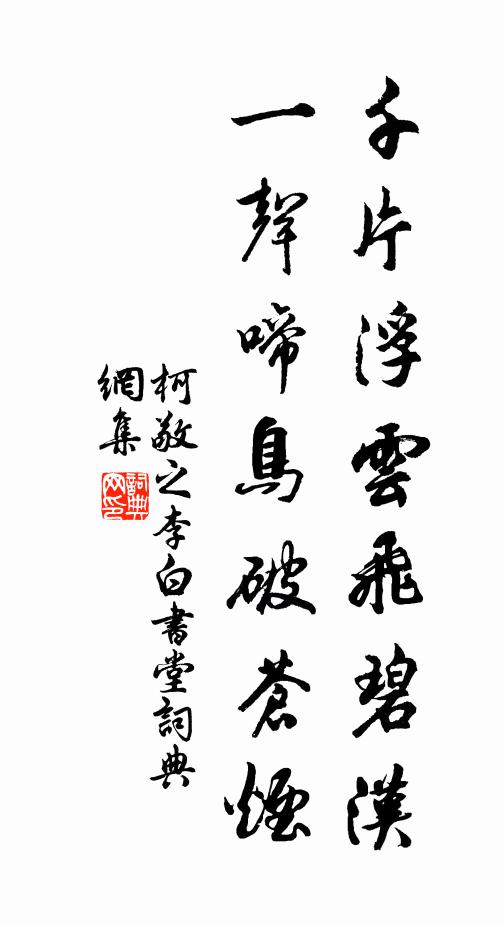 千片浮雲飛碧漢
一聲啼鳥破蒼煙
柯敬之李白書堂詞典
網集
詞典
网印